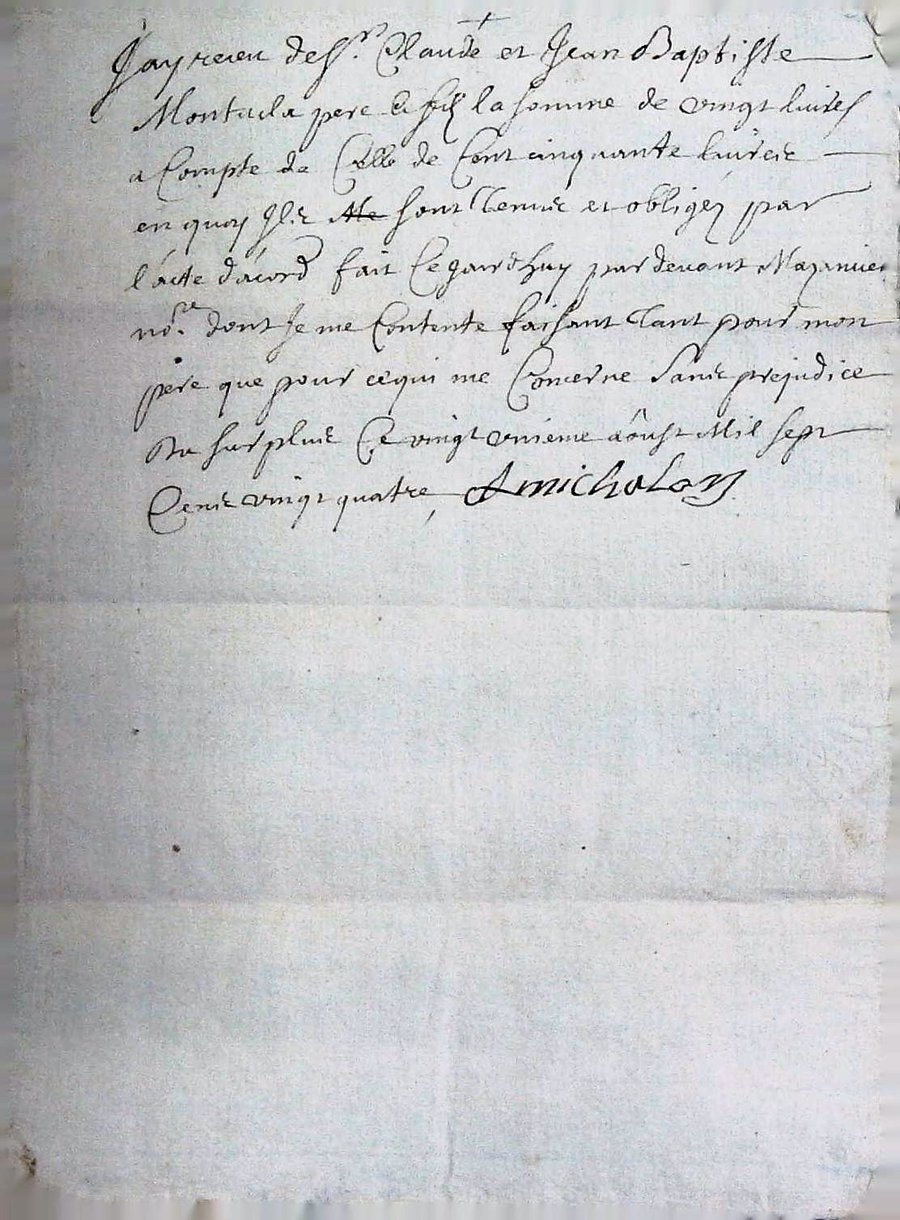 Jay receu de sr. Claude et Jean Baptiste
Montada pere et filz la somme de vingt livres
a Compte de Celle de Cent cinquante livres
en quoy Ils sont tenus et obligez par
l'acte d'acord fait Ce jourdhuy par devant Mazanier
nore. dont Je me Contente faisant tant pour mon
pere que pour cequi me Concerne Sans prejudice
du surplus Ce vingt unieme aoust Mil sept
Cens vingt quatre, Amicholon